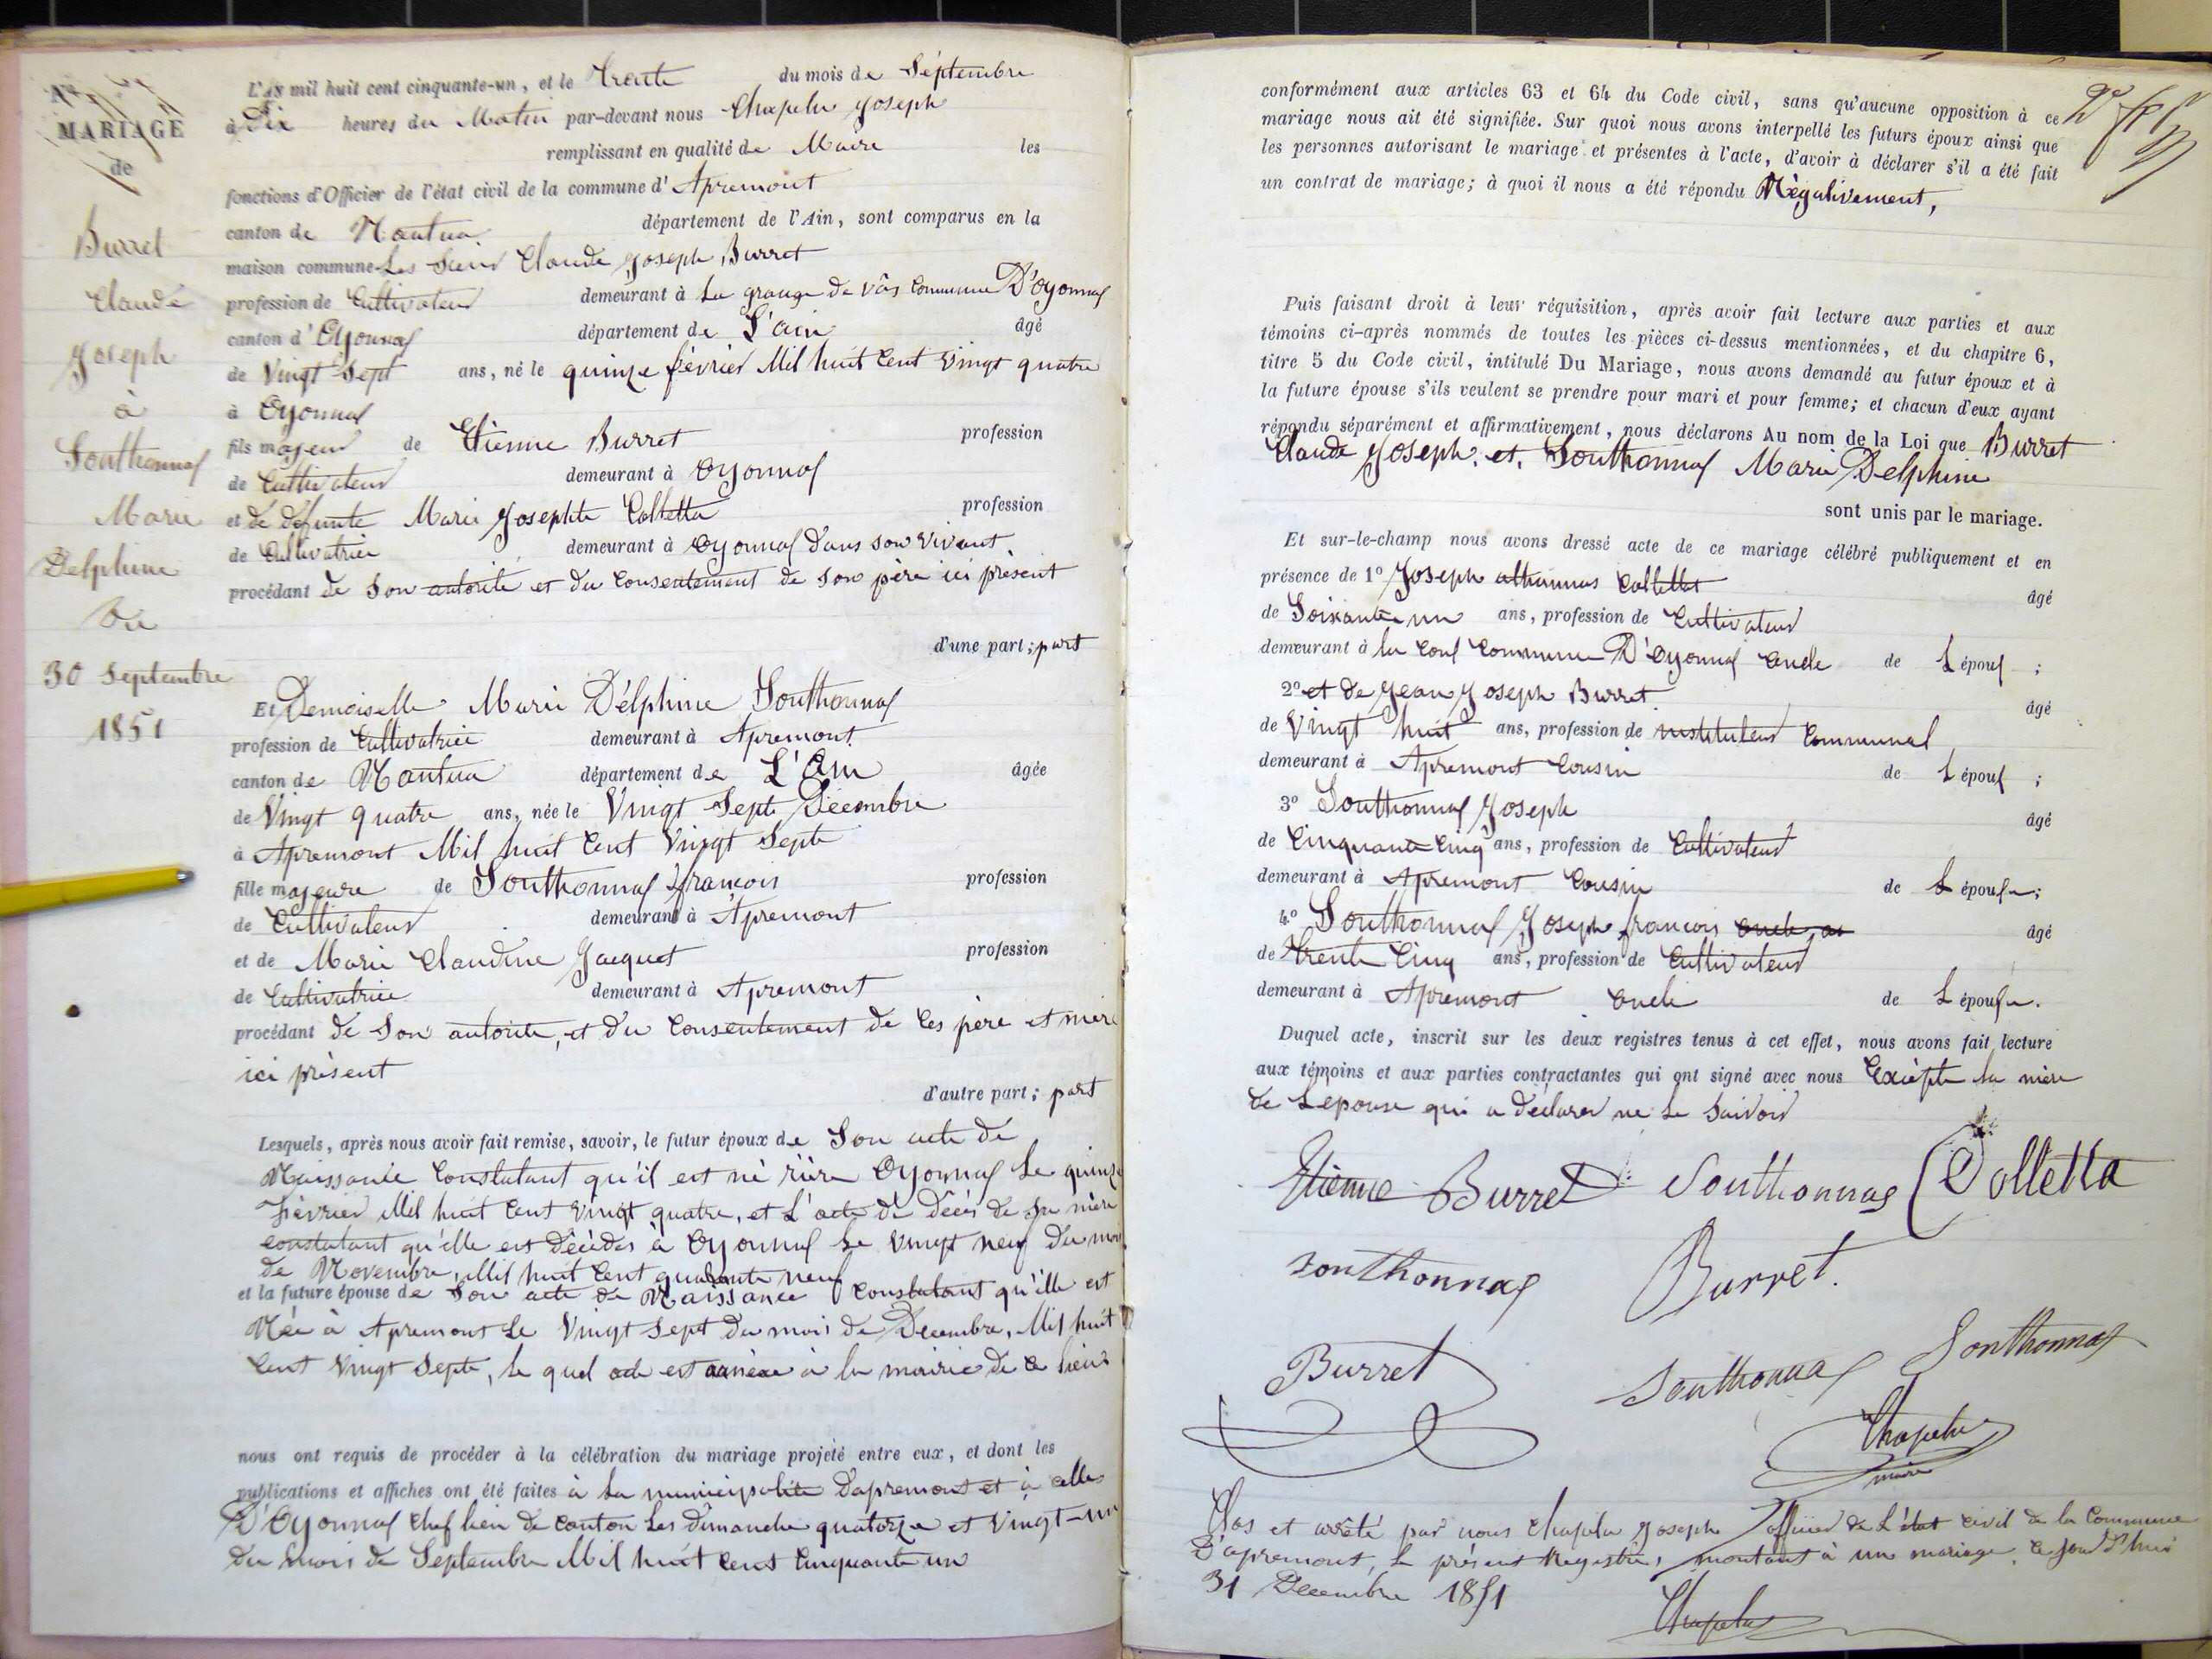 No
MARIAGE
de
Burret
Claude
Joseph
à
Sonthonnax
Marie
Delphine
Du
30 Septembre
1851
L'an mil huit cent cinquante-un, et le trente du mois de Septembre
à Dix heures du Matin par-devant nous Chapelu Joseph
remplissant en qualité de Maire les
fonctions d'Officier de l'état civil de la commune d'Apremont
canton de Nantua département de l'Ain, sont comparus en la
maison commune Les Sieur Claude Joseph Burret
profession de Cultivateur demeurant à La grange de Vâs Commune D'Oyonnax
canton d'Oyonnax département de L'ain âgé
de Vingt Sept ans, né le quinze février Mil huit Cent Vingt quatre
à Oyonnax
fils majeur de Etienne Burret profession
de Cultivateur demeurant à Oyonnax
et de défunte Marie Josephte Colletta profession
de Cultivatrice demeurant à Oyonnax Dans son Vivant
procédant de Son autorité et du Consentement de Son père ici présent
d'une part; part
Et Demoiselle Marie Délphine Sonthonnax
profession de Cultivatrice demeurant à Apremont
canton de Nantua département de L'Ain âgée
de Vingt quatre ans, née le Vingt Sept Décembre
à Apremont Mil huit Cent Vingt Septe
fille majeure de Sonthonnax françois profession
de Cultivateur demeurant à Apremont
et de Marie Claudine Jacquet profession
de Cultivatrice demeurant à Apremont
procédant de Son autorité, et du Consentement de Ces père et mère
ici présent
d'autre part; part
Lesquels, après nous avoir fait remise, savoir, le futur époux de Son acte de
Naissance Constatant qu'il est né rière Oyonnax Le quinze
Février Mil huit Cent Vingt quatre, et L'acte de décès de Sa mère
constatant qu'elle est Décédés à Oyonnax Le Vingt neuf du moi
de Novembre, Mil huit Cent quarante neuf
et la future épouse de Son acte de Naissance Constatant qu'elle est
Née à Apremont Le Vingt Sept du mois de Décembre, Mil huit
Cent Vingt Septe, le quel acte est annèxe à la mairie de Ce lieux
nous ont requis de procéder à la célébration du mariage projeté entre eux, et dont les
publications et affiches ont été faites à La municipalité D'apremont et à celle
D'Oyonnax Chef lieu de Canton Les Dimanche quatorze et Vingt-un
du mois de Septembre Mil huit Cent Cinquante un
conformément aux articles 63 et 64 du Code civil, sans qu'aucune opposition à ce
mariage nous ait été signifiée. Sur quoi nous avons interpellé les futurs époux ainsi que
les personnes autorisant le mariage et présentes à l'acte, d'avoir à déclarer s'il a été fait
un contrat de mariage; à quoi il nous a été répondu Négativement,
Puis faisant droit à leur réquisition, après avoir fait lecture aux parties et aux
témoins ci-après nommés de toutes les pièces ci-dessus mentionnées, et du chapitre 6,
titre 5 du Code civil, intitulé Du Mariage, nous avons demandé au futur époux et à
la future épouse s'ils veulent se prendre pour mari et pour femme; et chacun d'eux ayant
répondu séparément et affirmativement, nous déclarons Au nom de la Loi que Burret
Claude Joseph, et, Sonthonnax Marie Delphine
sont unis par le mariage.
Et sur-le-champ nous avons dressé acte de ce mariage célébré publiquement et en
présence de 1o Joseph athannas Collettat âgé
de Soixante un ans, profession de Cultivateur
demeurant à la Commune D'Oyonnax Oncle de L'époux;
2o et de Jean Joseph Burret âgé
de Vingt huit ans, profession de instituteur Communal
demeurant à Apremont Cousin de L'époux;
3o Sonthonnax Joseph âgé
de Cinquante Cinq ans, profession de Cultivateur
demeurant à Apremont Cousin de L'épouse;
4o Sonthonnax Joseph françois âgé
de trente Cinq ans, profession de Cultivateur
demeurant à Apremont Oncle de L'épouse.
Duquel acte, inscrit sur les deux registres tenus à cet effet, nous avons fait lecture
aux témoins et aux parties contractantes qui ont signé avec nous Excépte la mère
de L'epouse qui a déclarer ne Le Savoir
Etienne Burret Sonthonnax Colletta
Sonthonnax Burret.
Burret Sonthonnax Sonthonnax
Chapelu
maire
Clos et arrêté par nous Chapelu Joseph officier de L'état Civil de la Commune
D'apremont, Le présent Registre, montant à un mariage, Ce Jour D'hui
31 Décembre 1851
Chapelu